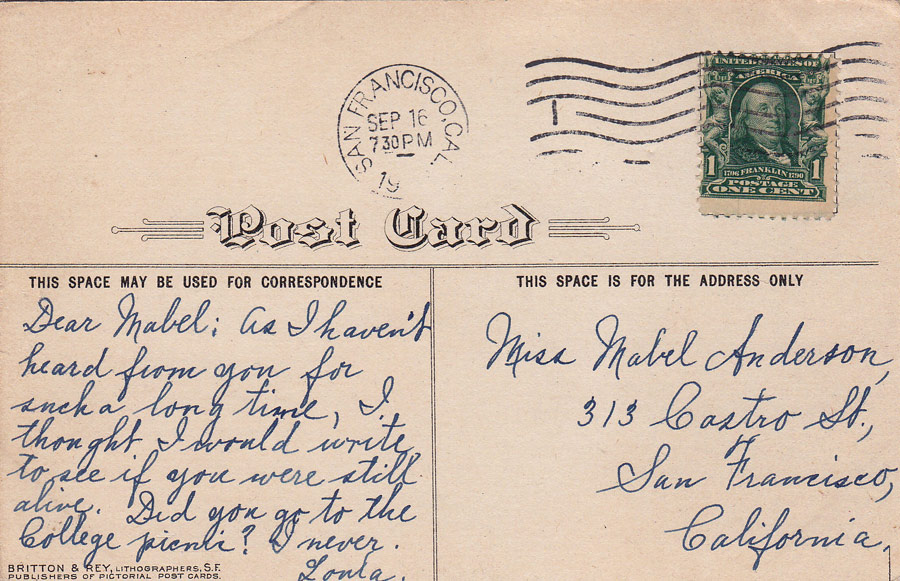 SAN FRANCISCO, CAL.
SEP 16
730 PM
19
UNITED STATES OF
AMERICA
1 1
1706 FRANKLIN 1790
POSTAGE
ONE CENT
Post Card
THIS SPACE MAY BE USED FOR CORRESPONDENCE
Dear Mabel; As I haven't
heard from you for
such a long time, I
thought I would write
to see if you were still
alive. Did you go to the
College picnic? I never.
THIS SPACE IS FOR THE ADDRESS ONLY
Miss Mabel Anderson,
313 Castro St.,
San Francisco,
California,
BRITTON & REY, LITHOGRAPHERS, S.F.
PUBLISHERS OF PICTORIAL POST CARDS.